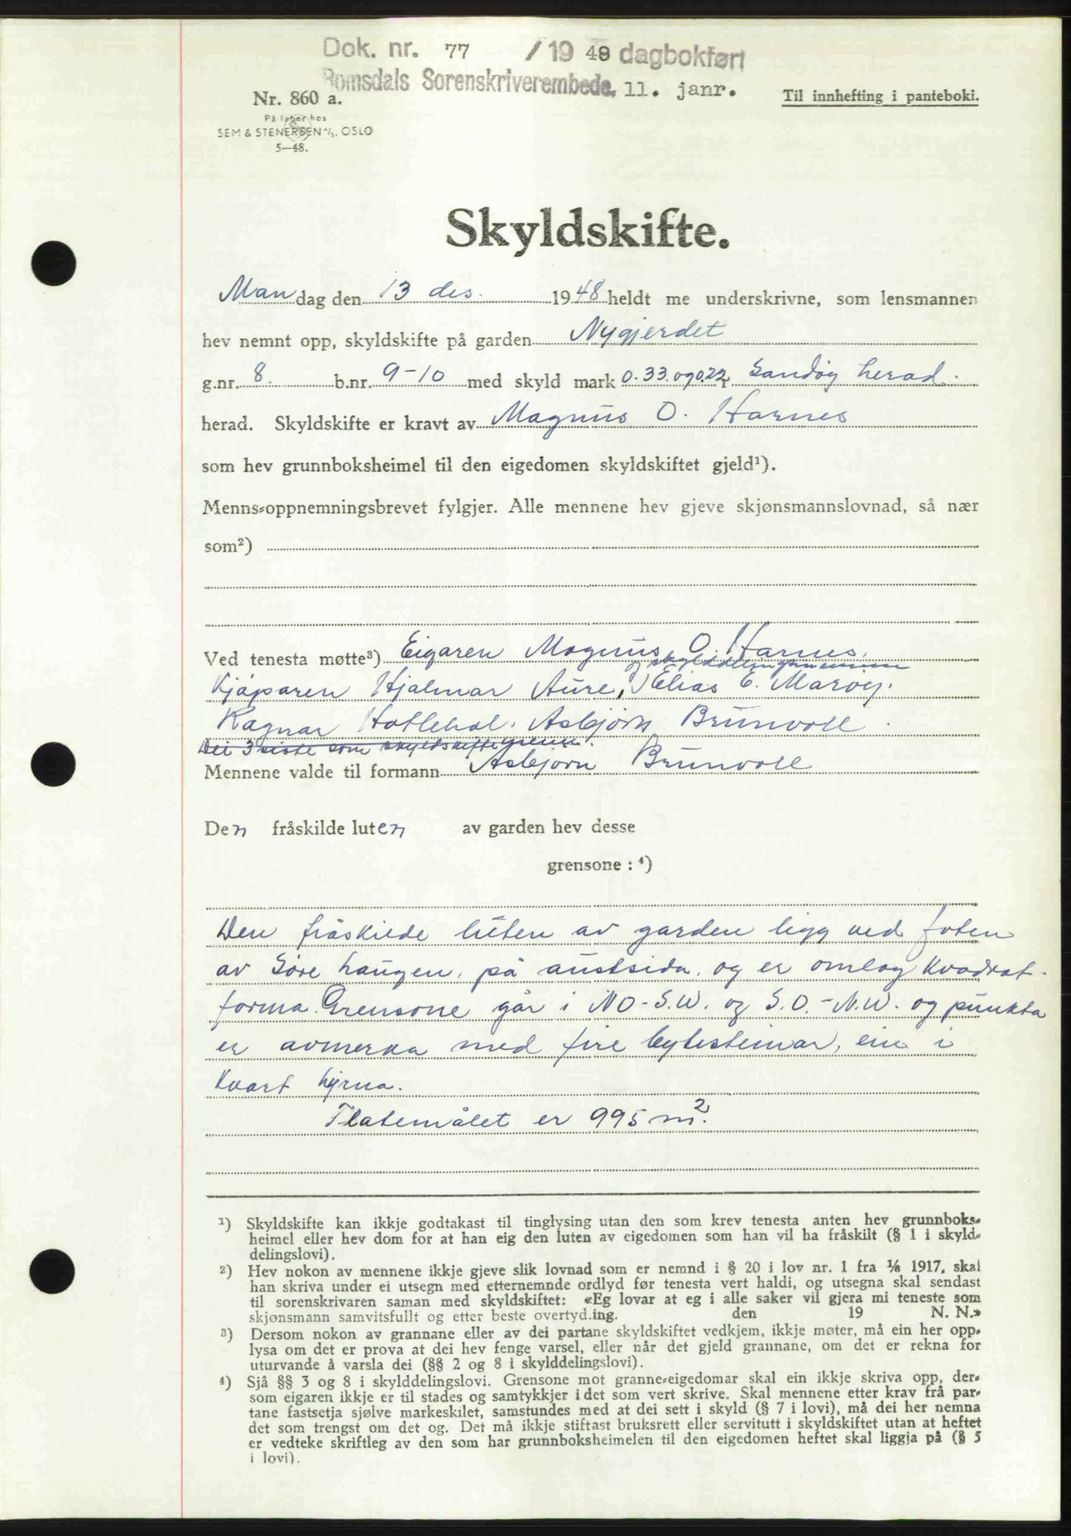 Dok. nr. 77 / 19 49 dagbokført
Romsdals Sorenskriverembede, 11. janr.
Nr. 860 a.
Til innhefting i panteboki.
På lager hos
SEM & STENERSEN A/S, OSLO
5—48.
Skyldskifte.
Mandag den 13 des. 1948 heldt me underskrivne, som lensmannen
hev nemnt opp, skyldskifte på garden Nygjerdet
g.nr. 8. b.nr. 9-10 med skyld mark 0.33 og 0.22 i Sandøy herad.
herad. Skyldskifte er kravt av Magnus O. Harnes
som hev grunnboksheimel til den eigedomen skyldskiftet gjeld¹).
Menns-oppnemningsbrevet fylgjer. Alle mennene hev gjeve skjønsmannslovnad, så nær
som²)
Ved tenesta møtte³) Eigaren Magnus O. Harnes,
og skylddelingsmennene
Kjøparen Hjalmar Aure, Elias E. Marøy.
Ragnar Hatlehol. Asbjørn Brunvoll.
Dei 3 siste som skyldskiftemenn.
Mennene valde til formann Asbjørn Brunvoll
Den fråskilde luten av garden hev desse
grensone : ⁴)
Den fråskilde luten av garden ligg ved foten
av Søre haugen, på austsida, og er omlag kvadrat-
forma. Grensone går i NO-S.W. og S.O.-N.W. og punkta
er avmerka med fire bytesteinar, ein i
kvart hyrna.
Flatemålet er 995 m².
¹) Skyldskifte kan ikkje godtakast til tinglysing utan den som krev tenesta anten hev grunnboks-
heimel eller hev dom for at han eig den luten av eigedomen som han vil ha fråskilt (§ 1 i skyld-
delingslovi).
²) Hev nokon av mennene ikkje gjeve slik lovnad som er nemnd i § 20 i lov nr. 1 fra ¹⁄₆ 1917, skal
han skriva under ei utsegn med etternemnde ordlyd før tenesta vert haldi, og utsegna skal sendast
til sorenskrivaren saman med skyldskiftet: «Eg lovar at eg i alle saker vil gjera mi teneste som
skjønsmann samvitsfullt og etter beste overtyd.ing. den 19 N. N.»
³) Dersom nokon av grannane eller av dei partane skyldskiftet vedkjem, ikkje møter, må ein her opp-
lysa om det er prova at dei hev fenge varsel, eller når det gjeld grannane, om det er rekna for
uturvande å varsla dei (§§ 2 og 8 i skylddelingslovi).
⁴) Sjå §§ 3 og 8 i skylddelingslovi. Grensone mot granne-eigedomar skal ein ikkje skriva opp, der-
som eigaren ikkje er til stades og samtykkjer i det som vert skrive. Skal mennene etter krav frå par-
tane fastsetja sjølve markeskilet, samstundes med at dei sett i skyld (§ 7 i lovi), må dei her nemna
det som trengst om det og. Det må ikkje stiftast bruksrett eller servitutt i skyldskiftet utan at heftet
er vedteke skriftleg av den som har grunnboksheimelen til den eigedomen heftet skal liggja på (§ 5
i lovi).